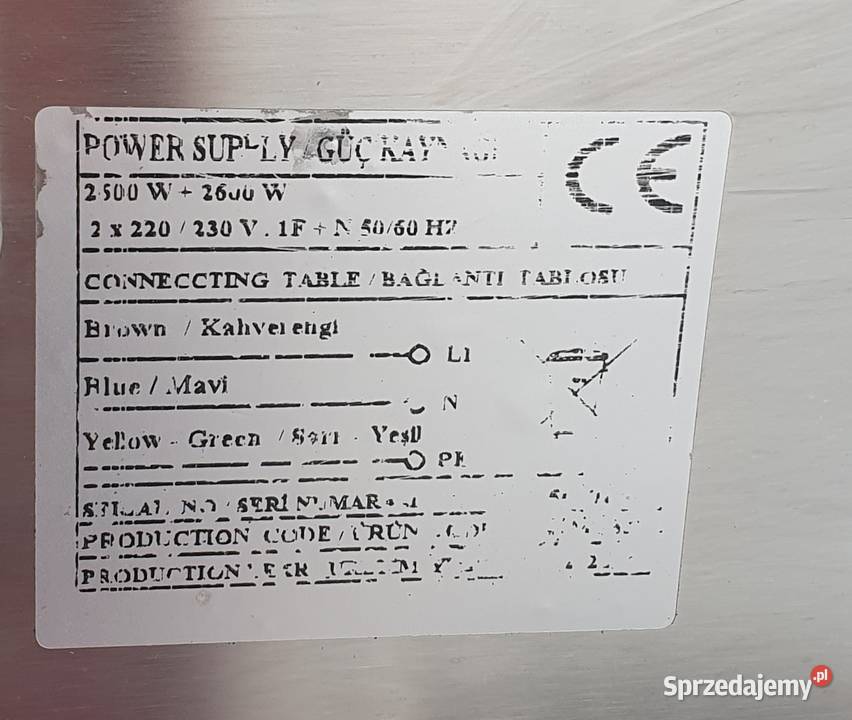 POWER SUPPLY / GÜÇ
CE
2500 W + 2600 W
2 x 220 / 230 V . 1F + N 50/60 HZ
CONNECCTING TABLE / BAĞLANTI TABLOSU
Brown / Kahverengi
L1
Blue / Mavi
N
Yellow - Green / Sarı - Yeşil
PE
SERİ
PRODUCTION CODE / ÜRÜN
PRODUCTION
Sprzedajemy.pl